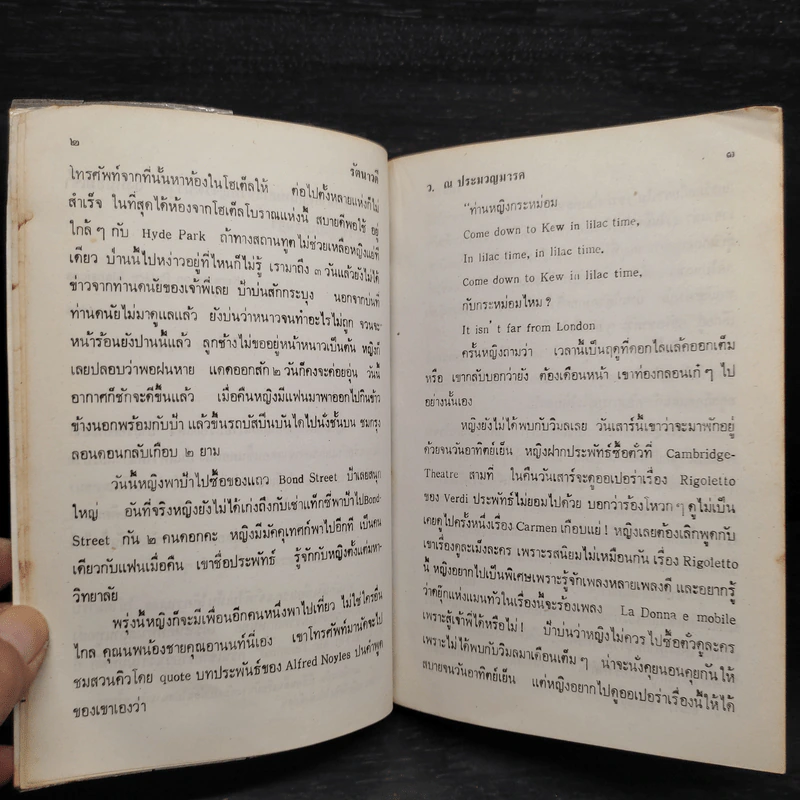 ๒
รัตนาวดี
โทรศัพท์จากที่นั้นหาห้องในโฮเต็ลให้ ต่อไปตั้งหลายแห่งก็ไม่
สำเร็จ ในที่สุดได้ห้องจากโฮเต็ลโบราณแห่งนี้ สบายดีพอใช้ อยู่
ใกล้ๆ กับ Hyde Park ถ้าทางสถานทูตไม่ช่วยเหลือหญิงแย่ที
เดียว ป่านนี้ไปหง่าวอยู่ที่ไหนก็ไม่รู้ เรามาถึง ๓ วันแล้วยังไม่ได้
ข่าวจากท่านดนัยของเจ้าพี่เลย ป้าบ่นสักกระบุง นอกจากบ่นที่
ท่านดนัยไม่มาดูแลแล้ว ยังบ่นว่าหนาวจนทำอะไรไม่ถูก จวนจะ
หน้าร้อนยังปานนี้แล้ว ลูกช้างไม่ขออยู่หน้าหนาวเป็นต้น หญิงก็
เลยปลอบว่าพอฝนหาย แดดออกสัก ๒ วันก็คงจะค่อยอุ่น วันนี้
อากาศก็ชักจะดีขึ้นแล้ว เมื่อคืนหญิงมีแฟนมาพาออกไปกินข้าว
ข้างนอกพร้อมกับป้า แล้วขึ้นรถบัสปีนบันไดไปนั่งชั้นบน ชมกรุง
ลอนดอนกลับเกือบ ๒ ยาม
วันนี้หญิงพาป้าไปซื้อของแถว Bond Street ป้าเลยสนุก
ใหญ่ อันที่จริงหญิงยังไม่ได้เก่งถึงกับเช่าแท็กซี่พาป้าไปBond-
Street กัน ๒ คนดอกคะ หญิงมีมัคคุเทศก์พาไปอีกที เป็นคน
เดียวกับแฟนเมื่อคืน เขาชื่อประพัทธ์ รู้จักกับหญิงตั้งแต่มหา-
วิทยาลัย
พรุ่งนี้หญิงก็จะมีเพื่อนอีกคนหนึ่งพาไปเที่ยว ไม่ใช่ใครอื่น
ไกล คุณนพน้องชายคุณอานนท์นี่เอง เขาโทรศัพท์มานัดจะไป
ชมสวนคิวโดย quote บทประพันธ์ของ Alfred Noyles ปนคำพูด
ของเขาเองว่า
ว. ณ ประมวญมารค
๓
"ท่านหญิงกระหม่อม
Come down to Kew in lilac time,
In lilac time, in lilac time.
Come down to Kew in lilac time,
กับกระหม่อมไหม ?
It isn't far from London
ครั้นหญิงถามว่า เวลานี้เป็นฤดูที่ดอกไลแล้คออกเต็ม
หรือ เขากลับบอกว่ายัง ต้องเดือนหน้า เขาท่องกลอนเก๋ๆ ไป
อย่างนั้นเอง
หญิงยังไม่ได้พบกับวิมลเลย วันเสาร์นี้เขาว่าจะมาพักอยู่
ด้วยจนวันอาทิตย์เย็น หญิงฝากประพัทธ์ซื้อตั๋วที่ Cambridge-
Theatre สามที่ ในคืนวันเสาร์จะดูออเปอร่าเรื่อง Rigoletto
ของ Verdi ประพัทธ์ไม่ยอมไปด้วย บอกว่าร้องโหวกๆ ดูไม่เป็น
เคยดูไปครั้งหนึ่งเรื่อง Carmen เกือบแย่ ! หญิงเลยต้องเลิกพูดกับ
เขาเรื่องดูละเม็งละคร เพราะรสนิยมไม่เหมือนกัน เรื่อง Rigoletto
นี้ หญิงอยากไปเป็นพิเศษเพราะรู้จักเพลงหลายเพลงดี และอยากรู้
ว่าดยุ๊กแห่งแมนทัวในเรื่องนี้จะร้องเพลง La Donna e mobile
เพราะสู้เจ้าพี่ได้หรือไม่ ! ป้าบ่นว่าหญิงไม่ควรไปซื้อตั๋วดูละคร
เพราะไม่ได้พบกับวิมลมาเดือนเต็มๆ น่าจะนั่งคุยนอนคุยกันให้
สบายจนวันอาทิตย์เย็น แต่หญิงอยากไปดูออเปอร่าเรื่องนี้ให้ได้